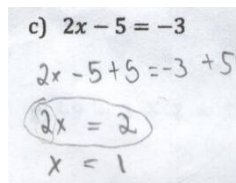 c) 2x − 5 = −3
2x - 5 + 5 = -3 + 5
2x = 2
x = 1